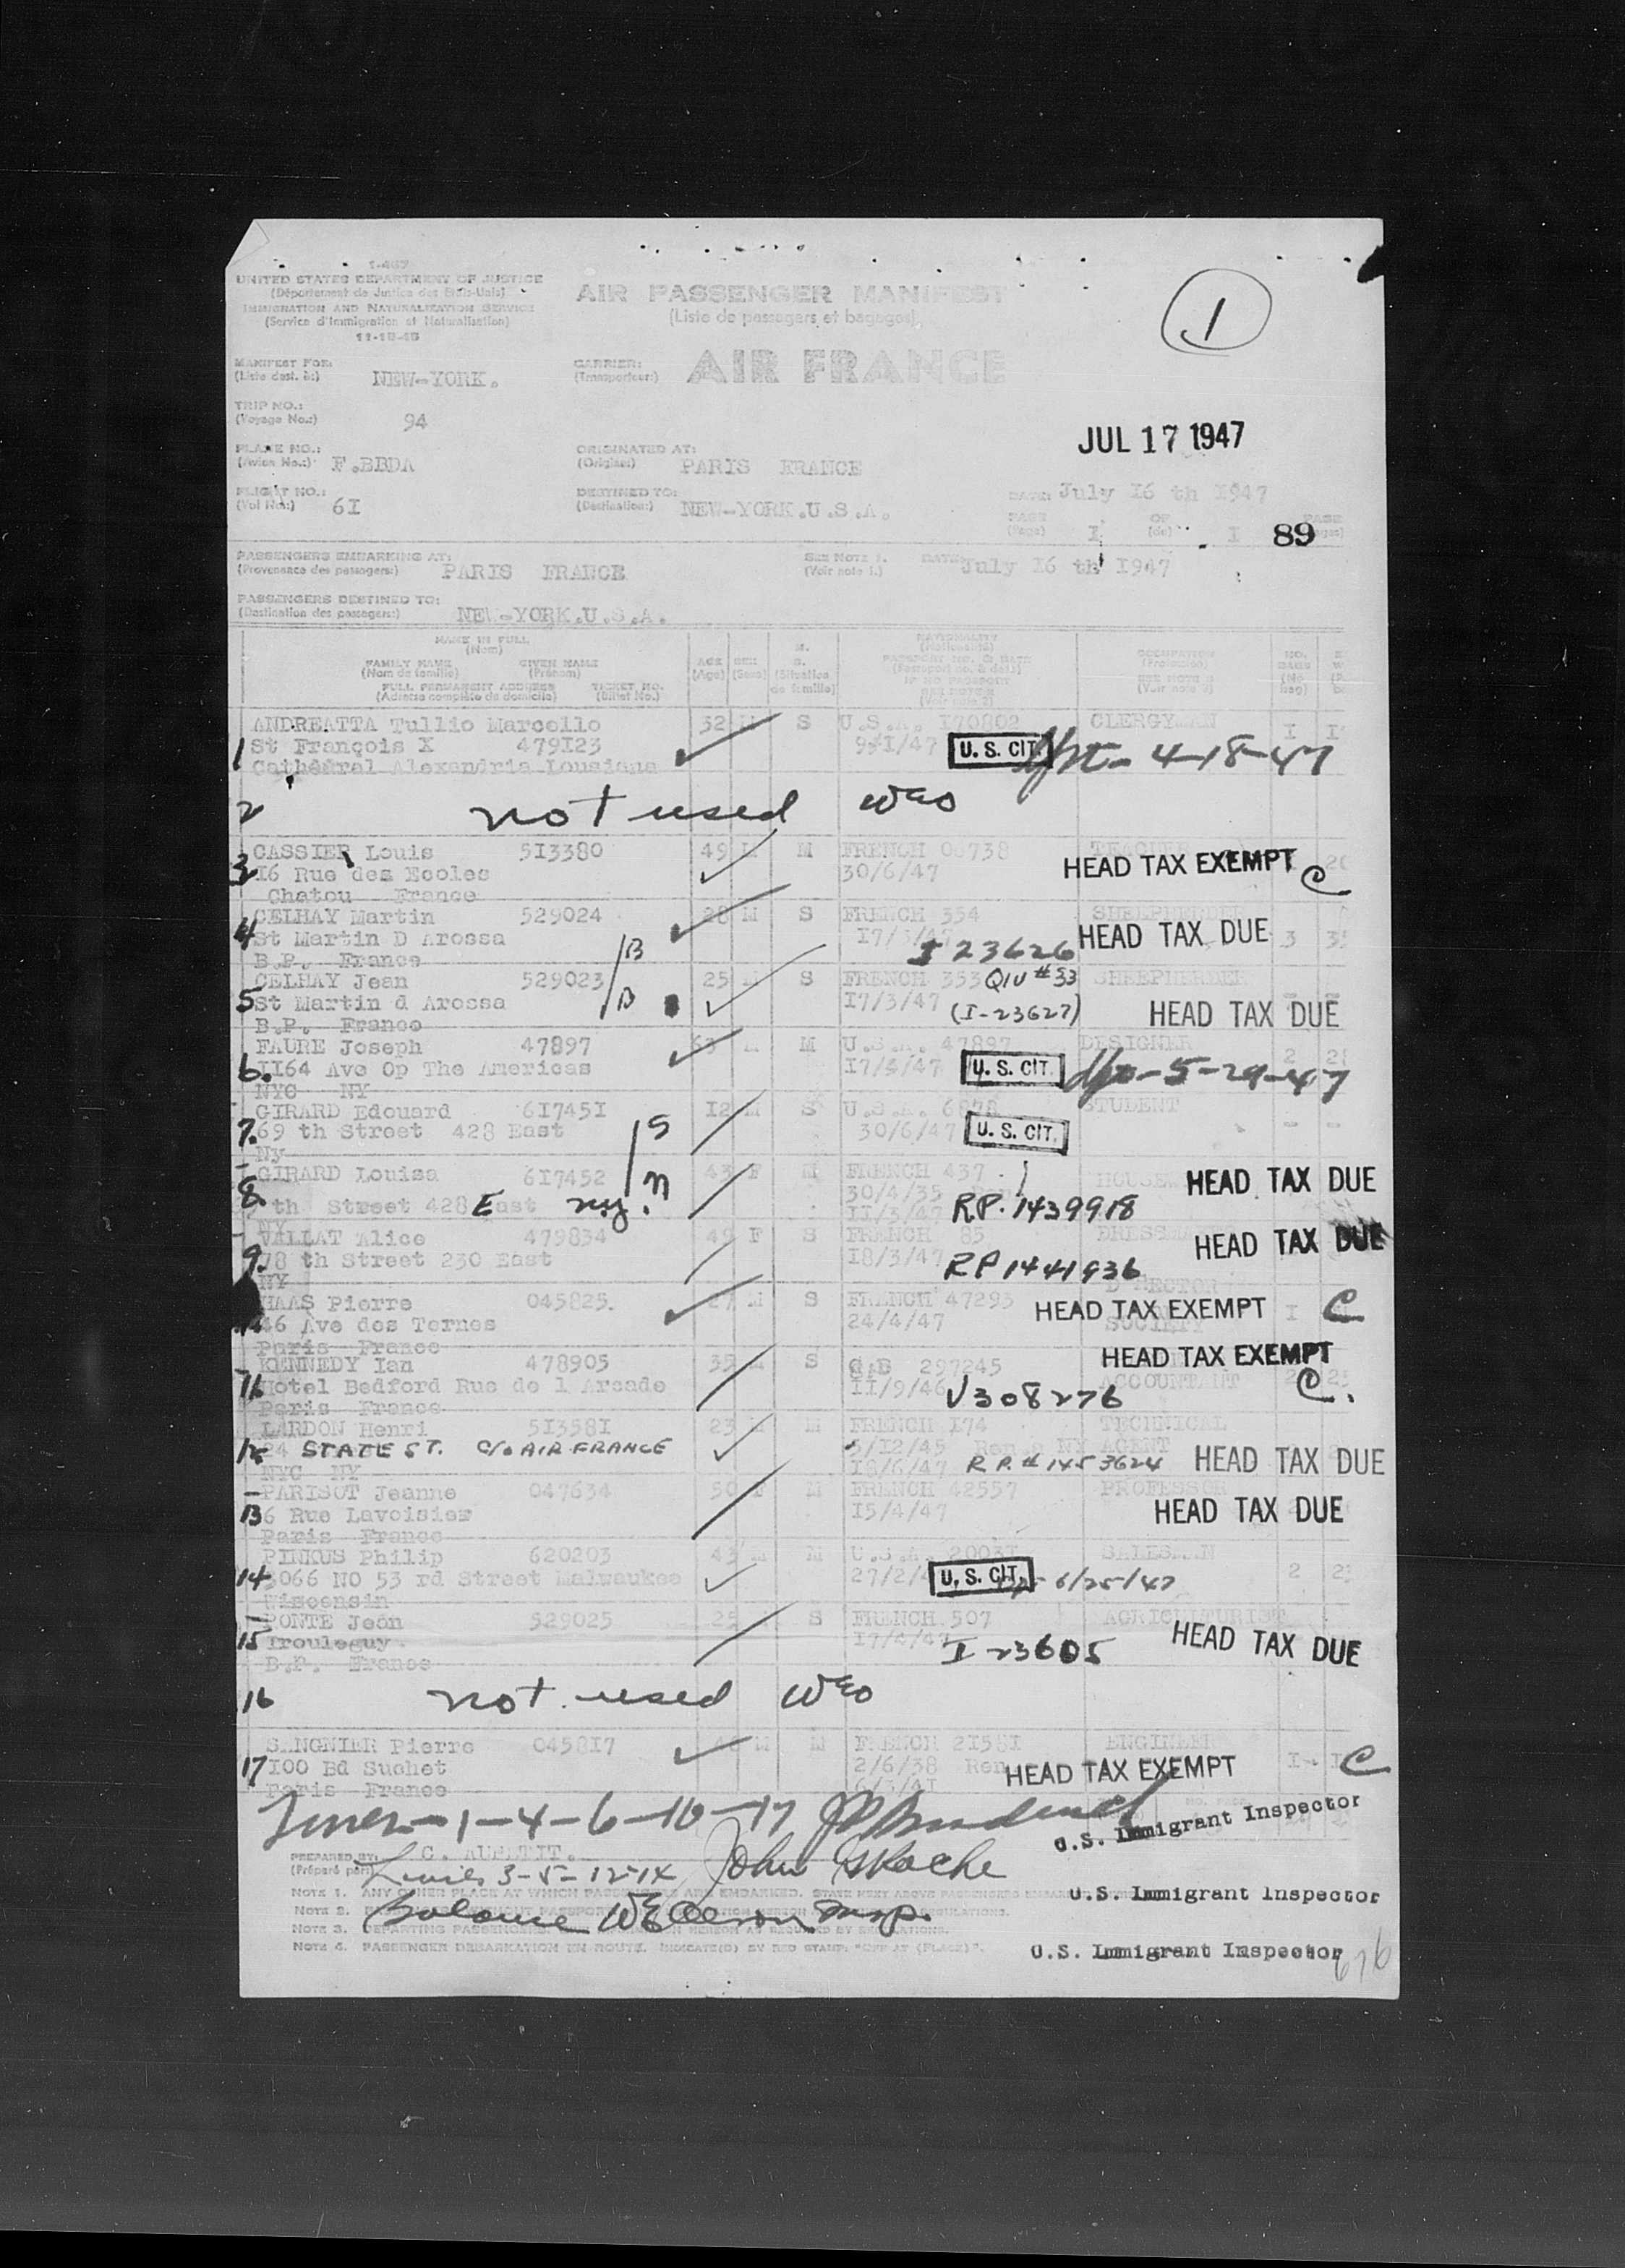 I-467
UNITED STATES DEPARTMENT OF JUSTICE
(Département de Justice des Etats-Unis)
IMMIGRATION AND NATURALIZATION SERVICE
(Service d'Immigration et Naturalisation)
11-18-46
AIR PASSENGER MANIFEST
(Liste de passagers et bagages)
1
MANIFEST FOR:
(Liste dest. à:) NEW-YORK.
CARRIER:
(Transporteur:) AIR FRANCE
TRIP NO.:
(Voyage No.:) 94
JUL 17 1947
PLANE NO.:
(Avion No.:) F.BBDA
ORIGINATED AT:
(Origine:) PARIS FRANCE
FLIGHT NO.:
(Vol No.:) 6I
DESTINED TO:
(Destination:) NEW-YORK.U.S.A.
DATE: July I6 th I947
PAGE OF PAGE
(Page) I (de) I 89
PASSENGERS EMBARKING AT:
(Provenance des passagers:) PARIS FRANCE
SEE NOTE 1.
(Voir note 1.)
DATE: July I6 th I947
PASSENGERS DESTINED TO:
(Destination des passagers:) NEW-YORK.U.S.A.
NAME IN FULL
(Nom)
FAMILY NAME GIVEN NAME
(Nom de famille) (Prénom)
FULL PERMANENT ADDRESS TICKET NO.
(Adresse complète de domicile) (Billet No.)
AGE SEX M. S.
(Age) (Sexe) (Situation de famille)
NATIONALITY
(Nationalité)
PASSPORT NO. & DATE
(Passeport no. & date)
IF NO PASSPORT
SEE NOTE 2
(Voir note 2)
OCCUPATION
(Profession)
SEE NOTE 3
(Voir note 3)
NO. BAGS
1 ANDREATTA Tullio Marcello 32 M S U.S.A. I70802 CLERGYMAN I
St François X 479I23 U.S. CIT. 4-18-47
Cathédral Alexandria Lousiana
2 not used WEO
3 CASSIER Louis 5I3380 49 M M FRENCH 06738 TEACHER
I6 Rue des Ecoles 30/6/47 HEAD TAX EXEMPT C
Chatou France
4 CELHAY Martin 529024 28 M S FRENCH 354 SHEEPHERDER
St Martin D Arossa I7/3/47 I 23626 HEAD TAX DUE 3
B.P. France B
5 CELHAY Jean 529023 25 M S FRENCH 353 QIV #33 SHEEPHERDER
St Martin d Arossa B I7/3/47 (I-23627) HEAD TAX DUE
B.P. France
6. FAURE Joseph 47897 63 M M U.S.A. 47897 DESIGNER 2
II64 Ave Op The Americas I7/5/47 U.S. CIT. 5-29-47
NYC NY
7. GIRARD Edouard 6I745I I2 M S U.S.A. 6878 STUDENT
69 th Street 428 East S 30/6/47 U.S. CIT.
Ny
8. GIRARD Louisa 6I7452 n 43 F M FRENCH 437 HEAD TAX DUE
th Street 428 East E ny. 30/4/35 RP. 1439918
NY II/3/47
9. VALLAT Alice 479834 49 F S FRENCH 85 HEAD TAX DUE
78 th Street 230 East I8/3/47 RP 1441936
NY
HAAS Pierre 045825 27 M S FRENCH 47293 HEAD TAX EXEMPT I C
46 Ave des Ternes 24/4/47 SOCIETY
Paris France
11 KENNEDY Ian 478905 35 M S G.B 297245 HEAD TAX EXEMPT
Hotel Bedford Rue de l Arcade II/9/46 V308276 ACCOUNTANT C.
Paris France
12 LARDON Henri 5I358I 23 M M FRENCH I74 TECHNICAL
24 STATE ST. C/o AIR FRANCE 5/I2/45 Ren NY AGENT
NYC NY I8/6/47 R.P.# 1453624 HEAD TAX DUE
13 PARISOT Jeanne 047634 50 F M FRENCH 42557 PROFESSOR
6 Rue Lavoisier I5/4/47 HEAD TAX DUE
Paris France
14 PINKUS Philip 620203 43 M M U.S.A. 2003I SALESMAN
3066 NO 53 rd Street Malwaukee 27/2/ U.S. CIT. 6/25/47 2
Wisconsin
15 PONTE Jean 529025 25 S FRENCH 507 AGRICULTURIST
Irouleguy I7/4/47 I-23605 HEAD TAX DUE
B.P. France
16 not used WEO
17 SANGNIER Pierre 0458I7 M M FRENCH 2I58I ENGINEER
I00 Bd Suchet 2/6/38 Ren HEAD TAX EXEMPT I C
Paris France 6/3/4I
Lines-1-4-6-10-17 U.S. Immigrant Inspector
PREPARED BY:
(Préparé par:) C. AUPETIT.
Lines 3-5-12-14 John
U.S. Immigrant Inspector
NOTE 1. ANY OTHER PLACE AT WHICH PASSENGERS ARE EMBARKED.
NOTE 2.
Balance WE Olerson Insp.
NOTE 3. DEPARTING PASSENGERS
NOTE 4. PASSENGER DEBARKATION EN ROUTE. INDICATE(D) BY RED STAMP: "OFF AT (PLACE)".
U.S. Immigrant Inspector
676